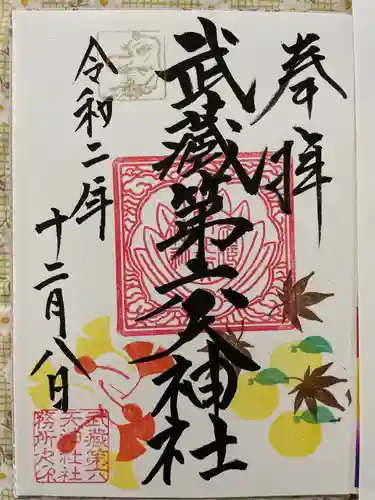 奉拝
武蔵第六天神社
令和二年
十二月八日
武蔵第六
天神社社
務所之印